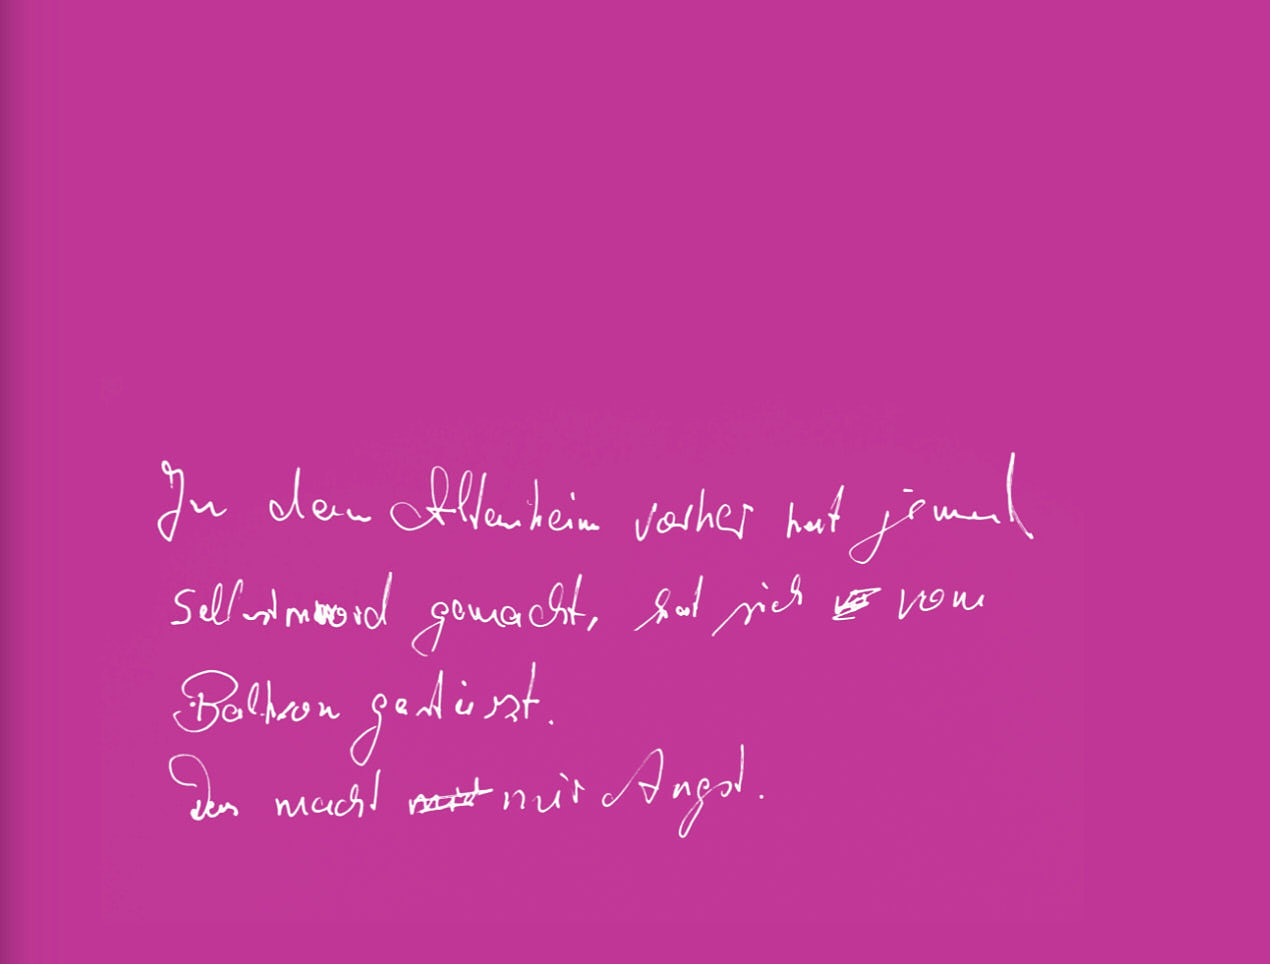 In dem Altenheim vorher hat jemand
Selbstmord gemacht, hat sich vom
Balkon gestürzt.
Das macht mir Angst.